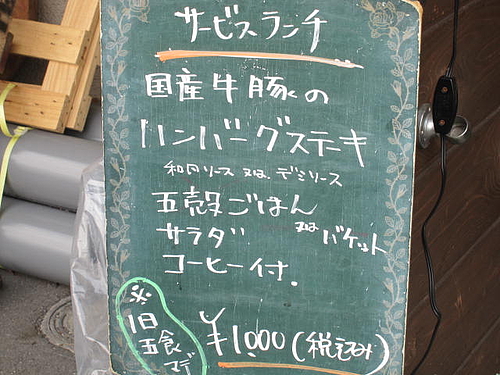 サービスランチ
国産牛豚の
ハンバーグステーキ
和風ソース 又は、デミソース
五穀ごはん
又は バケット
サラダ
コーヒー付.
※
1日
五食
マデ
¥1,000(税込み)